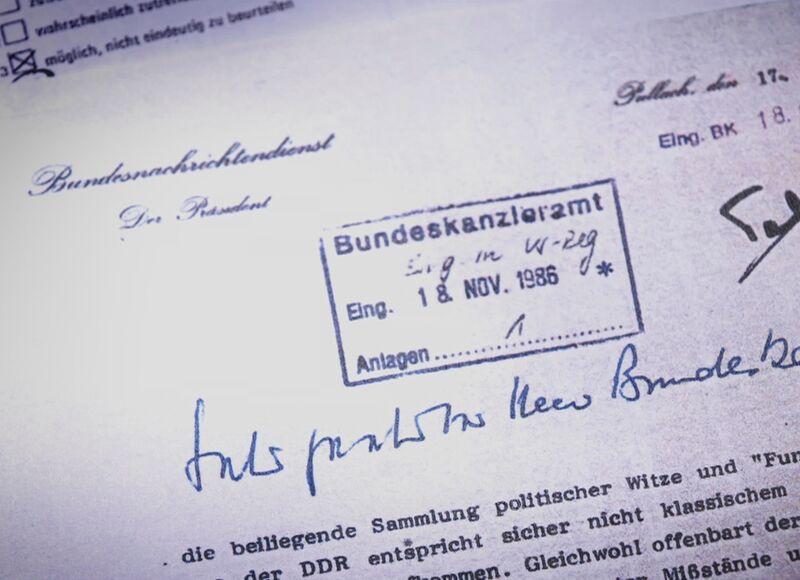 wahrscheinlich
möglich, nicht eindeutig zu beurteilen
Pullach, den 17.
Eing. BK 18.
Bundesnachrichtendienst
Der Präsident
Bundeskanzleramt
Eing. in
Eing. 18. NOV. 1986 *
Anlagen 1
Sehr geehrter Herr Bundeska
die beiliegende Sammlung politischer Witze und "Fun
der DDR entspricht sicher nicht klassischem
kommen. Gleichwohl offenbart der
Mißstände u